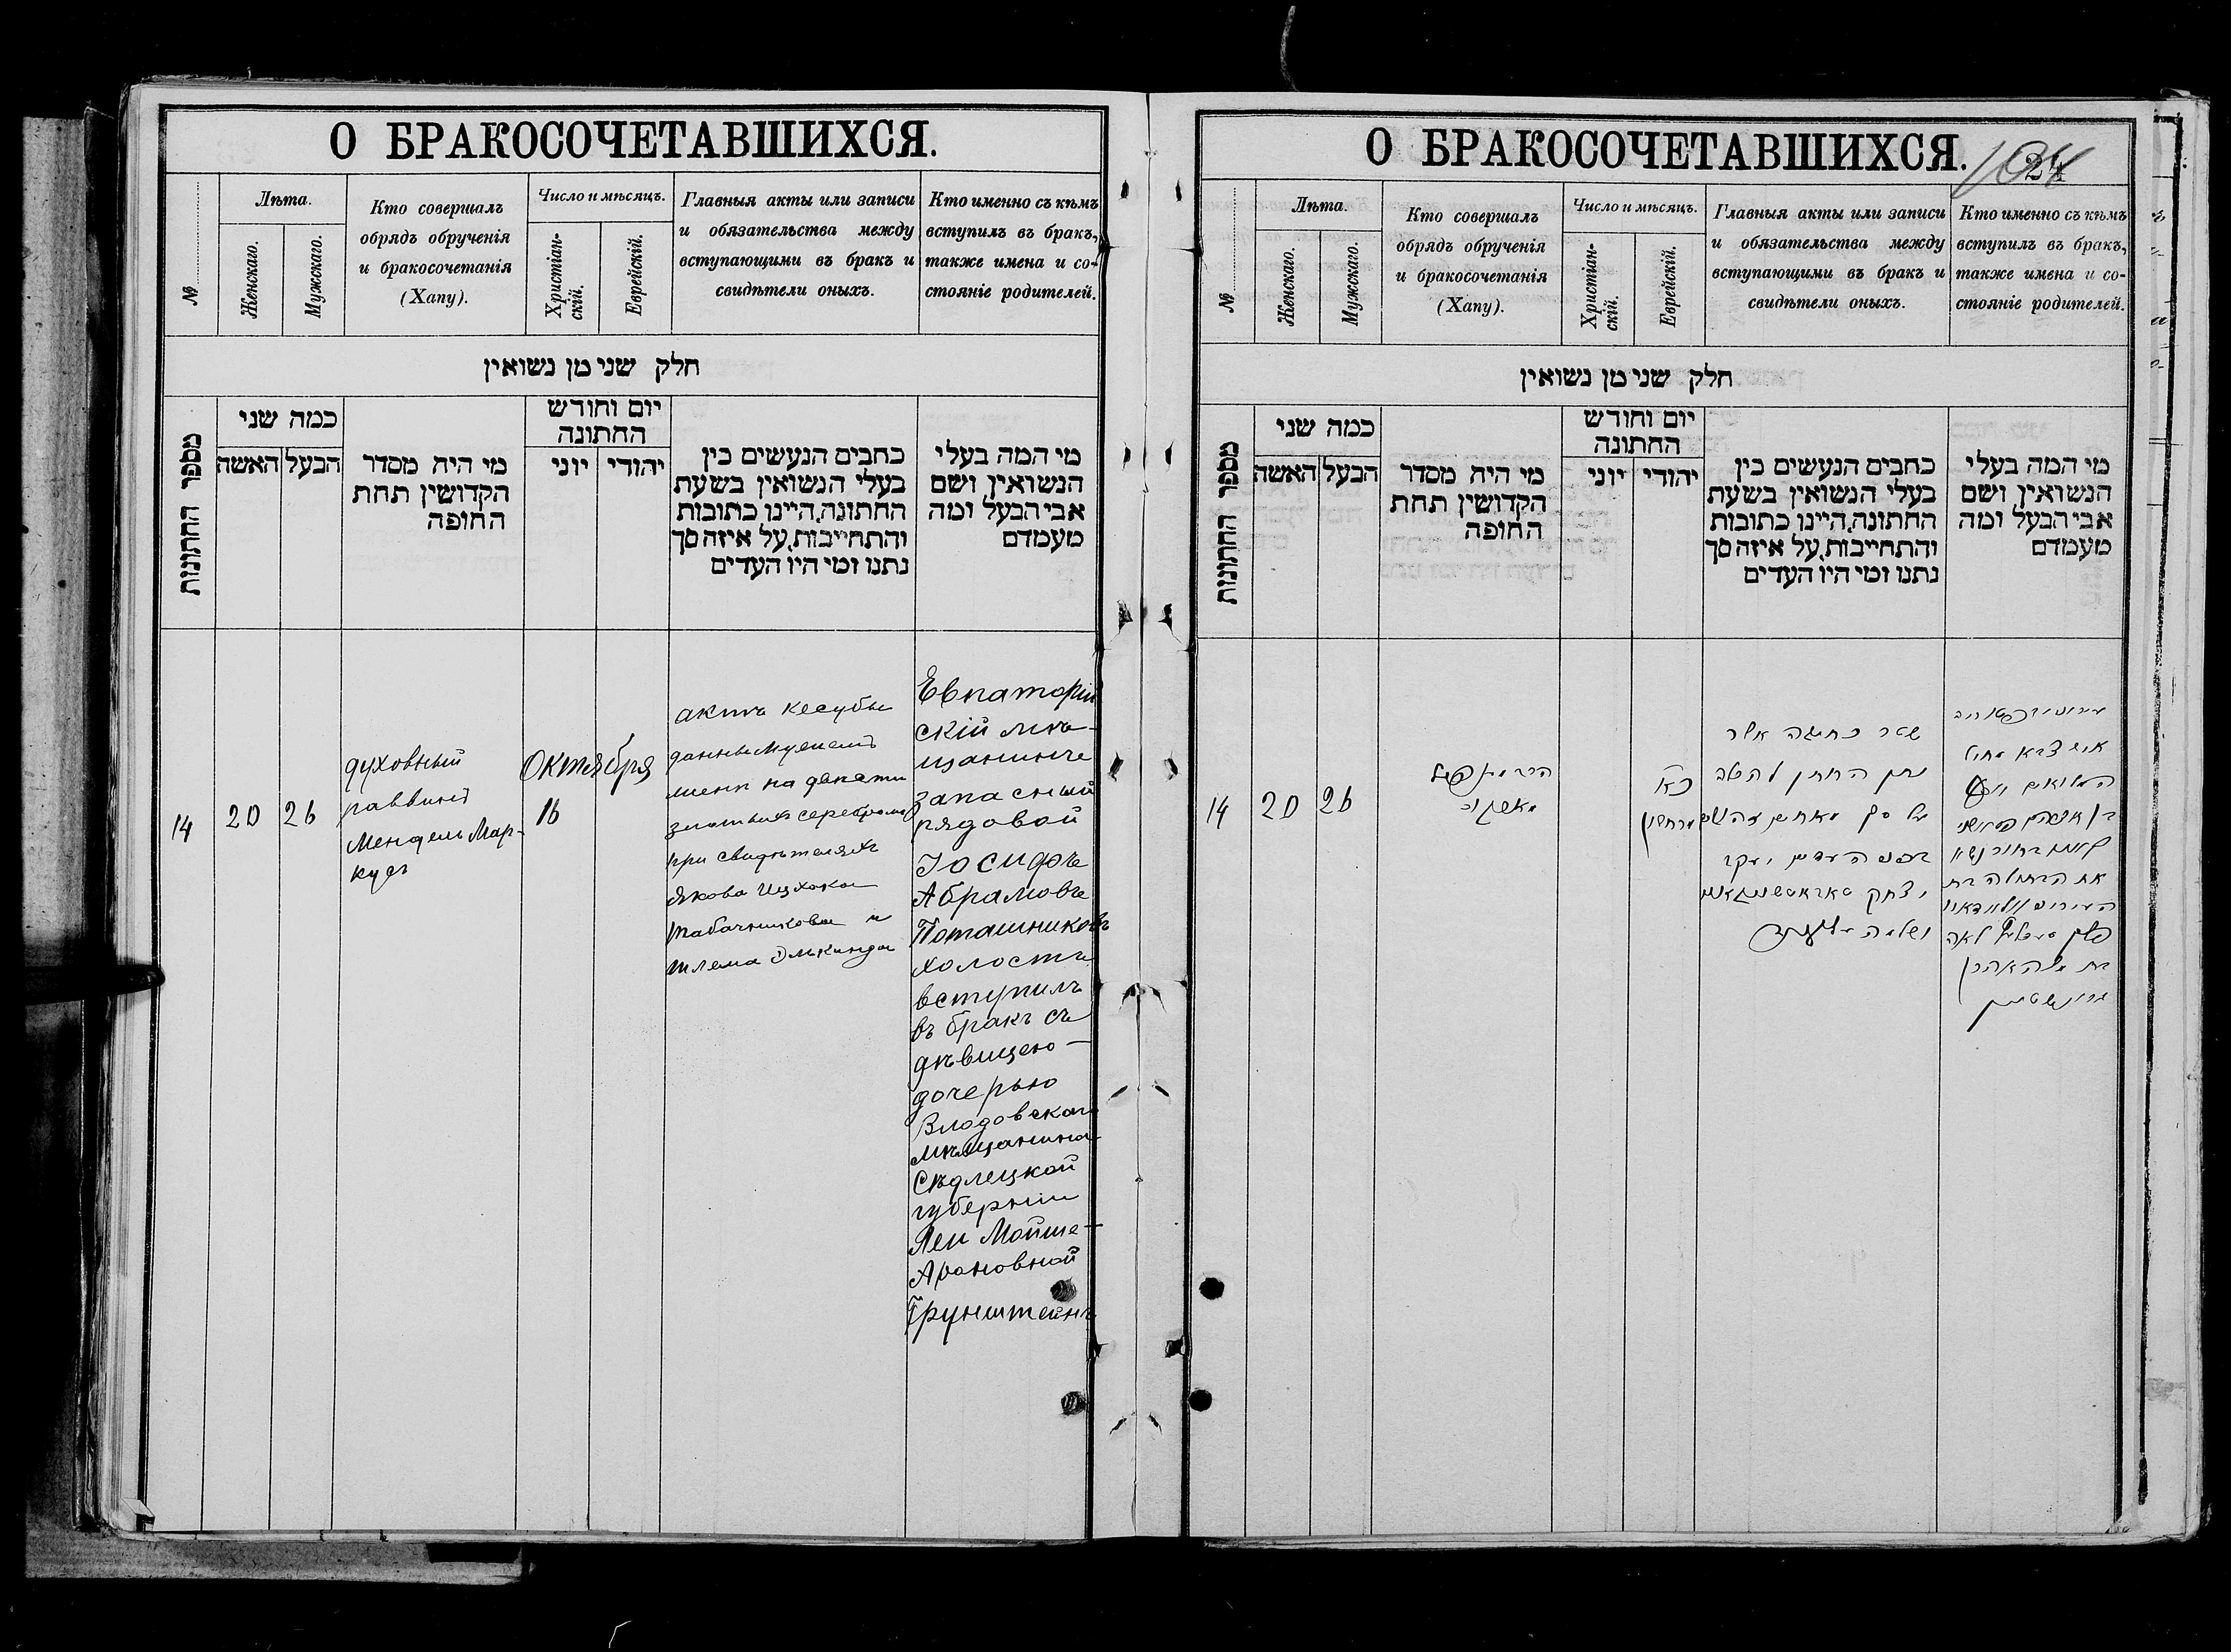 О БРАКОСОЧЕТАВШИХСЯ.
№
Лѣта.
Женскаго.
Мужскаго.
Кто совершалъ
обрядъ обрученія
и бракосочетанія
(Хапу).
Число и мѣсяцъ.
Христіан-
скій.
Еврейскій.
Главныя акты или записи
и обязательства между
вступающими въ бракъ и
свидѣтели оныхъ.
Кто именно съ кѣмъ
вступилъ въ бракъ,
также имена и со-
стояніе родителей.
חלק שני מן נשואין
מספר החתונות
כמה שני
האשה
הבעל
מי היה מסדר
הקדושין תחת
החופה
יום וחודש
החתונה
יוני
יהודי
כתבים הנעשים בין
בעלי הנשואין בשעת
החתונה, היינו כתובות
והתחייבות, על איזה סך
נתנו ומי היו העדים
מי המה בעלי
הנשואין ושם
אבי הבעל ומה
מעמדם
14
20
26
духовный
раввинъ
Мендель Мар-
кусъ
Октября
16
актъ кесубы
данный мужемъ
женѣ на девяти
злотыхъ серебромъ
при свидѣтеляхъ
Якова Ицхока
Табачникова и
Шлема Элькинда
Евпаторій
скій мѣ-
щанинъ
запасный
рядовой
Іосифъ
Абрамовъ
Поташниковъ
холостъ
вступилъ
въ бракъ съ
дѣвицею
дочерью
Влодовскаго
мѣщанина
Сѣдлецкой
губерніи
Леи Мойше-
Ароновной
Грунштейнъ
О БРАКОСОЧЕТАВШИХСЯ.
24
104
№
Лѣта.
Женскаго.
Мужскаго.
Кто совершалъ
обрядъ обрученія
и бракосочетанія
(Хапу).
Число и мѣсяцъ.
Христіан-
скій.
Еврейскій.
Главныя акты или записи
и обязательства между
вступающими въ бракъ и
свидѣтели оныхъ.
Кто именно съ кѣмъ
вступилъ въ бракъ,
также имена и со-
стояніе родителей.
חלק שני מן נשואין
מספר החתונות
כמה שני
האשה
הבעל
מי היה מסדר
הקדושין תחת
החופה
יום וחודש
החתונה
יוני
יהודי
כתבים הנעשים בין
בעלי הנשואין בשעת
החתונה, היינו כתובות
והתחייבות, על איזה סך
נתנו ומי היו העדים
מי המה בעלי
הנשואין ושם
אבי הבעל ומה
מעמדם
14
20
26
מרחשון
שטר כתובה אשר
נתן החתן להכלה
על סך
בפני העדים יעקב
יצחק
ושלמה
איש צבא
בן אברהם
בחור נשא
את הבתולה בת
לאה
בת משה אהרן
גרונשטיין